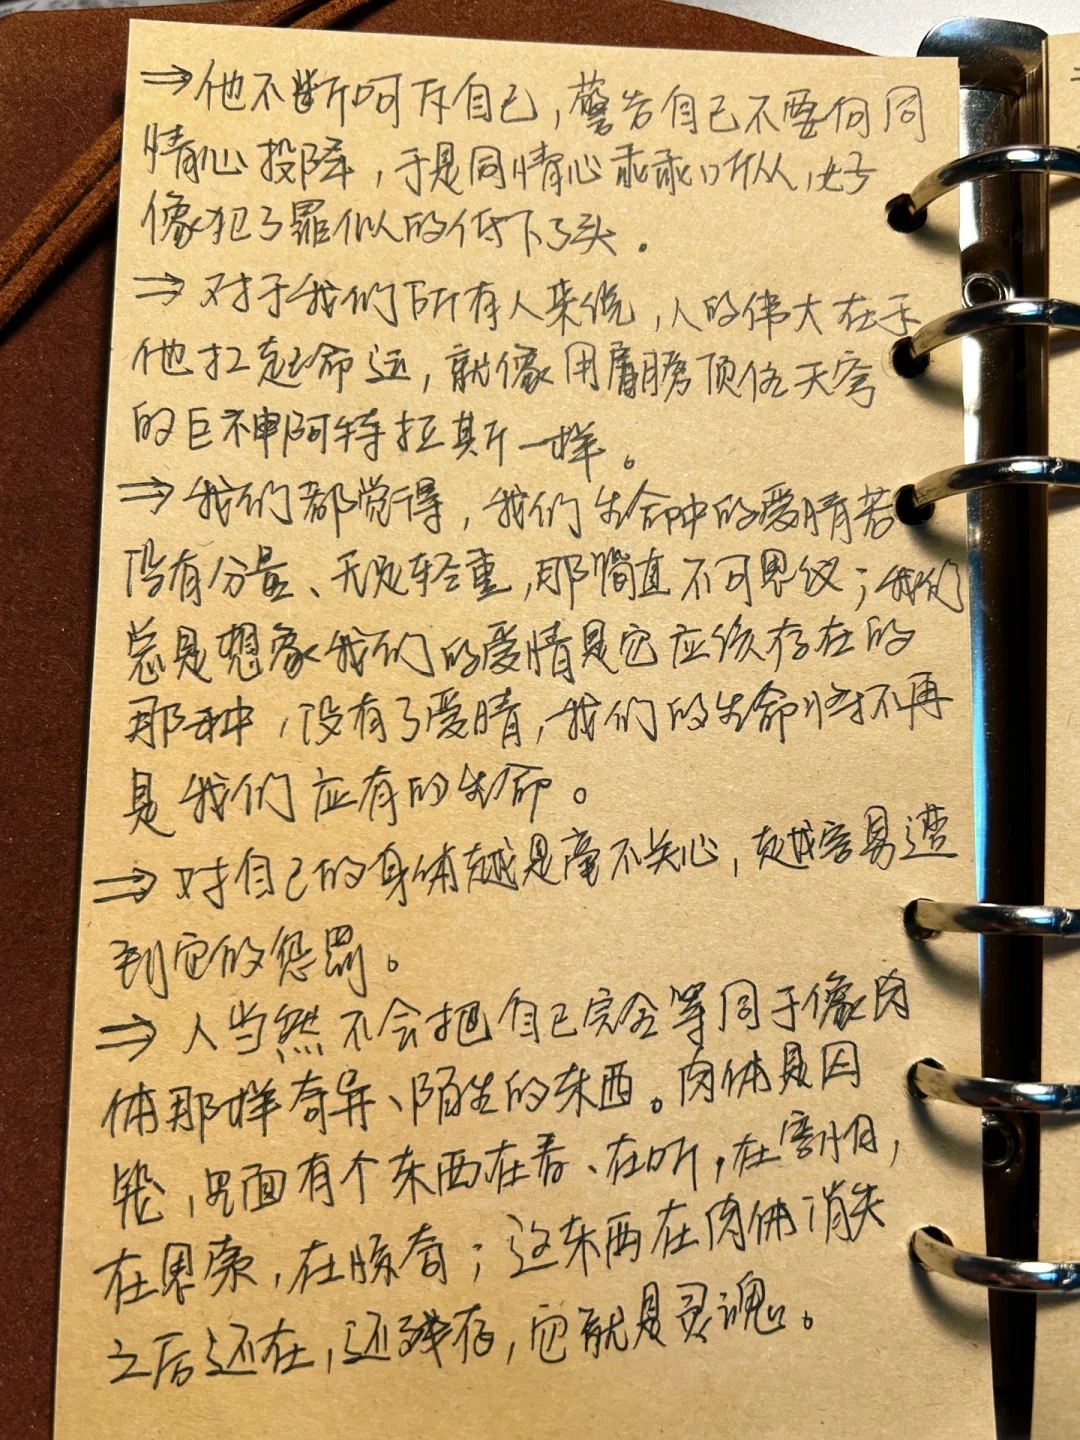 ⇒他不断呵斥自己,警告自己不要向同
情心投降,于是同情心乖乖听从,好
像犯了罪似的低下了头.
⇒对于我们所有人来说,人的伟大在于
他扛起命运,就像用肩膀顶住天穹
的巨神阿特拉斯一样。
⇒我们都觉得,我们生命中的爱情若
没有分量、无足轻重,那简直不可思议;我们
总是想象我们的爱情是它应该存在的
那种,没有了爱情,我们的生命将不再
是我们应有的生命。
⇒对自己的身体越是毫不关心,越容易遭
到它的惩罚。
⇒人当然不会把自己完全等同于像肉
体那样奇异、陌生的东西。肉体是囚
笼,里面有个东西在看、在听,在害怕,
在思索,在惊奇;这东西在肉体消失
之后还在,还残存,它就是灵魂。